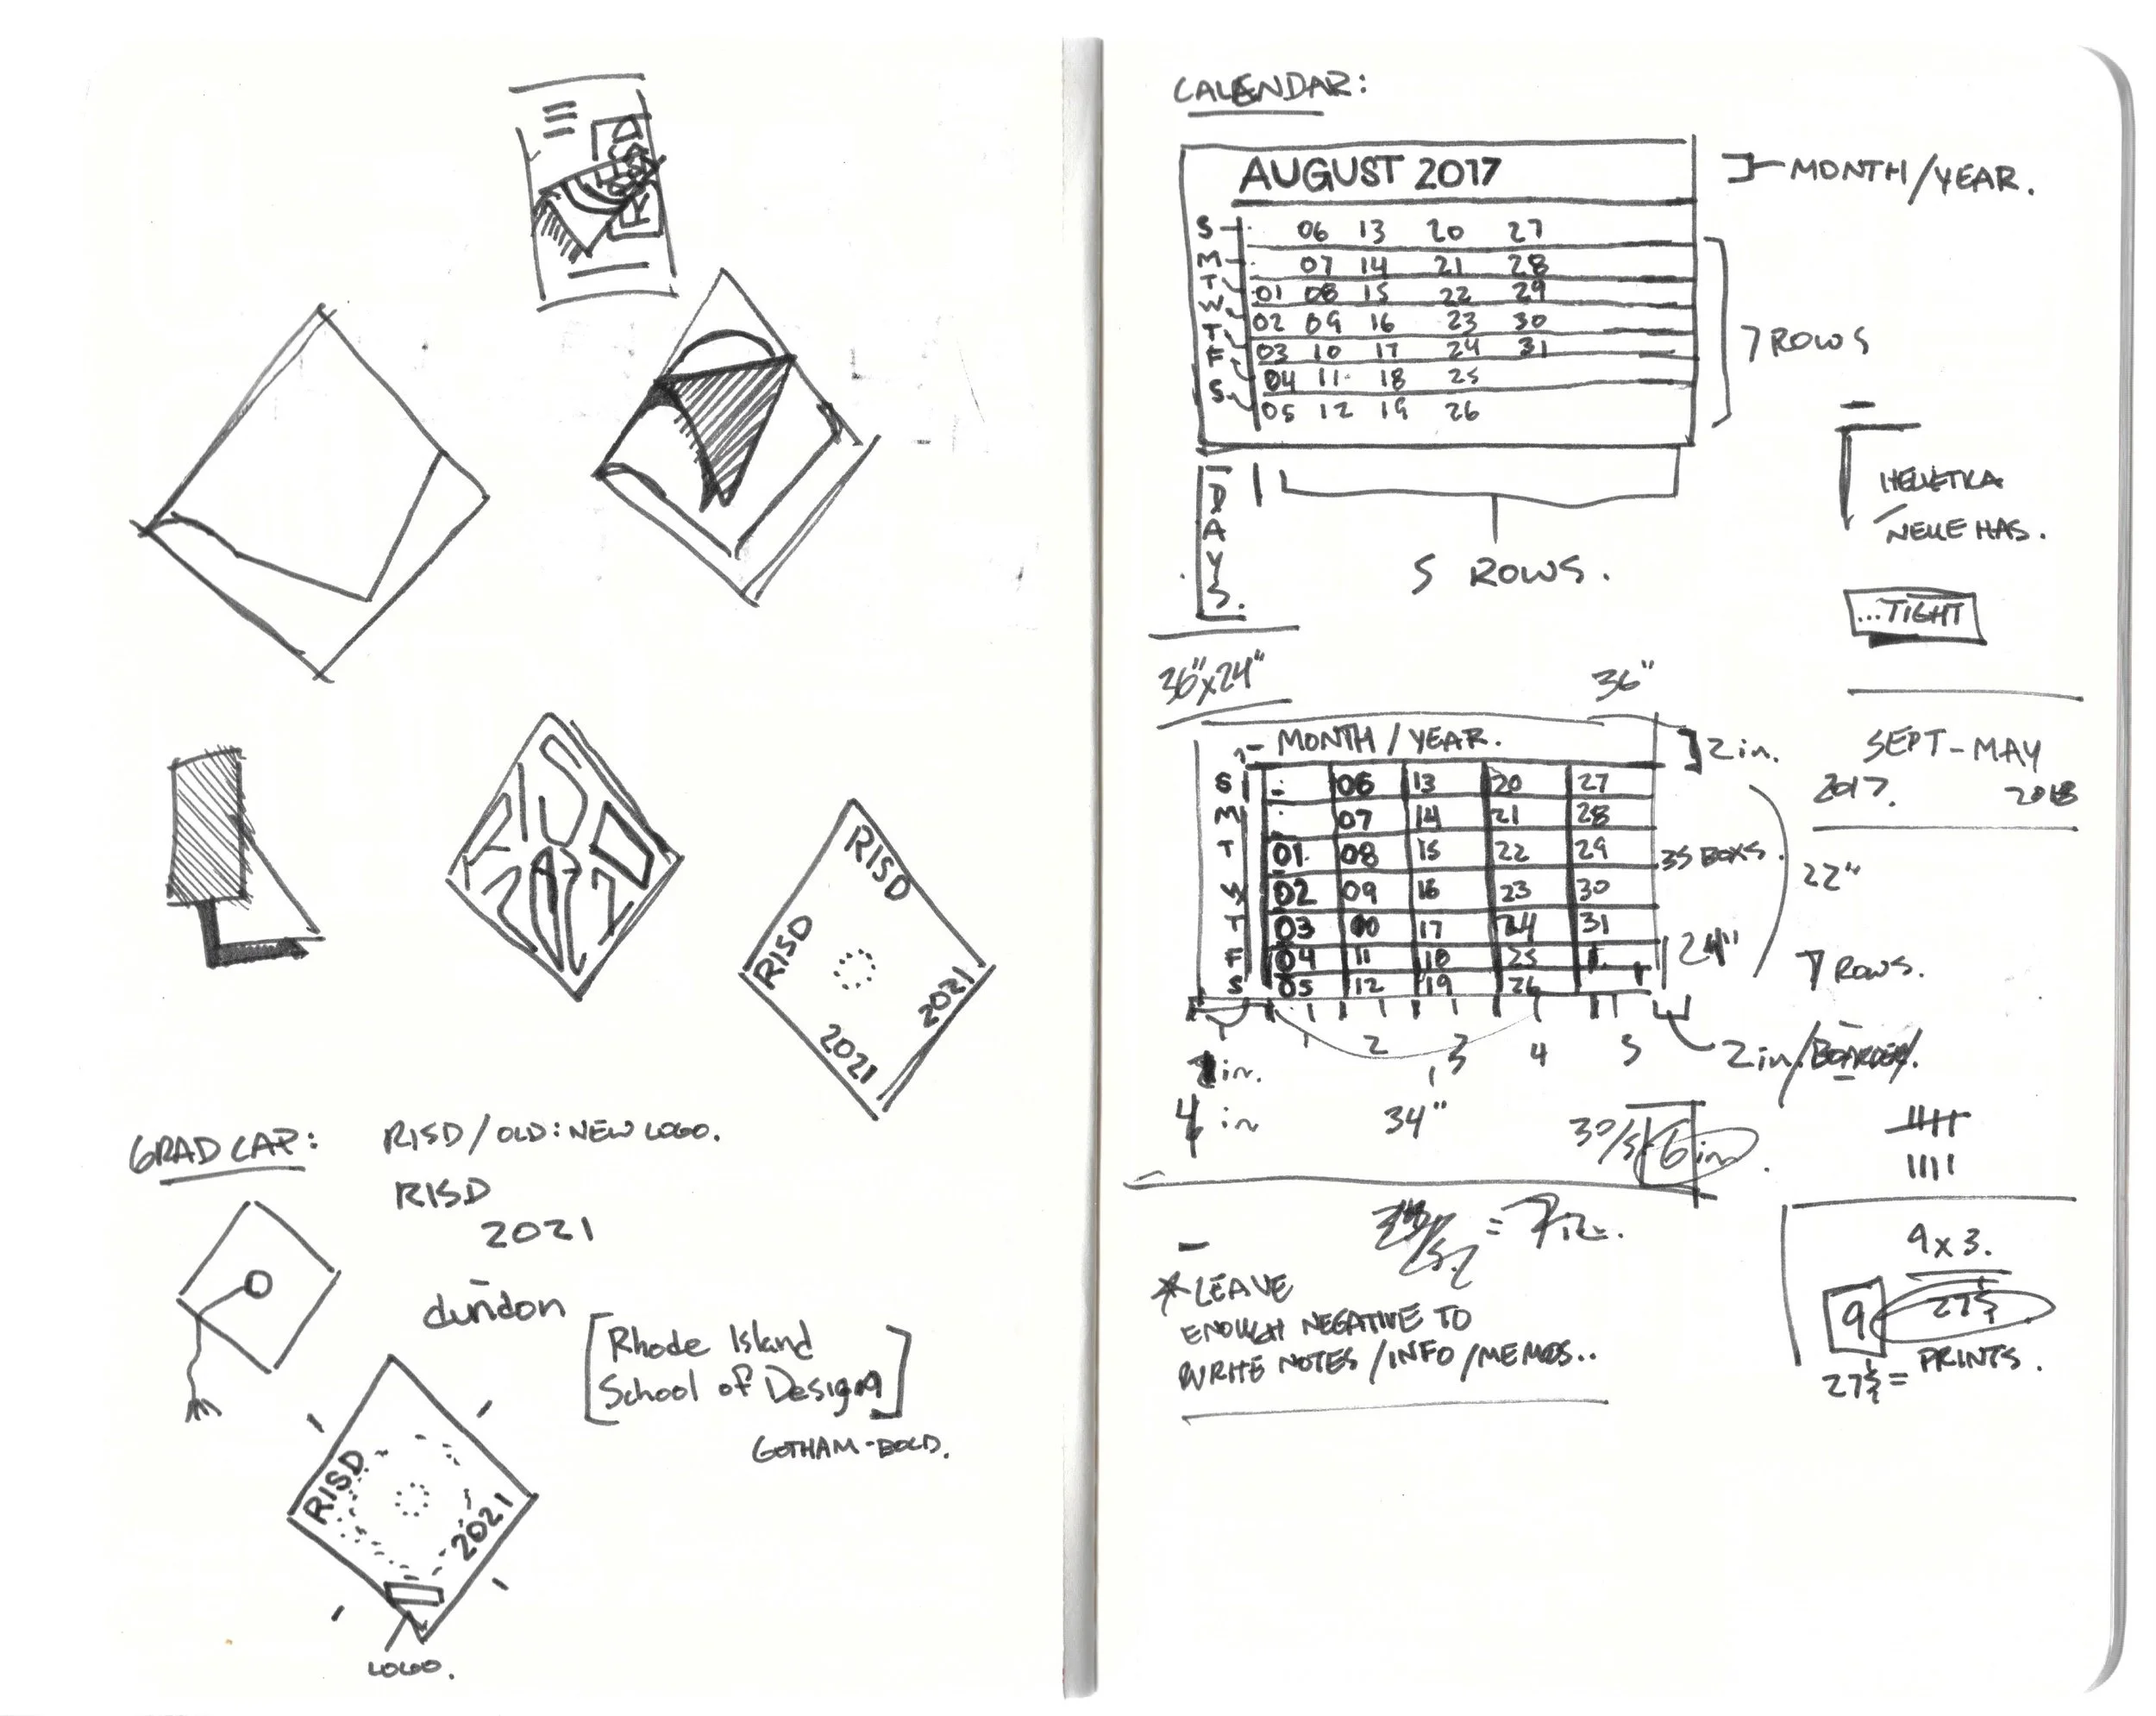 RISD
RISD
2021
2021
GRAD CAP:
RISD/OLD: NEW LOGO.
RISD
2021
dundon
[Rhode Island
School of Design]
GOTHAM-BOLD.
RISD
2021
LOGO.
CALENDAR:
AUGUST 2017
MONTH/YEAR.
S 06 13 20 27
M 07 14 21 28
T 01 08 15 22 29
W 02 09 16 23 30
T 03 10 17 24 31
F 04 11 18 25
S 05 12 19 26
7 ROWS
DAYS.
5 ROWS.
HELVETICA
NEUE HAS.
...TIGHT
36"x24"
36"
MONTH / YEAR.
2in.
S 06 13 20 27
M 07 14 21 28
T 01 08 15 22 29
W 02 09 16 23 30
T 03 10 17 24 31
F 04 11 18 25
S 05 12 19 26
35 BOXS.
24"
SEPT-MAY
2017. 2018
22"
7 ROWS.
1 2 3 4 5
2in/BOARDER/.
in.
4 in
34"
30/5
6 in
9x3.
9
27
27 = PRINTS.
*LEAVE
ENOUGH NEGATIVE TO
WRITE NOTES/INFO/MEMOS..